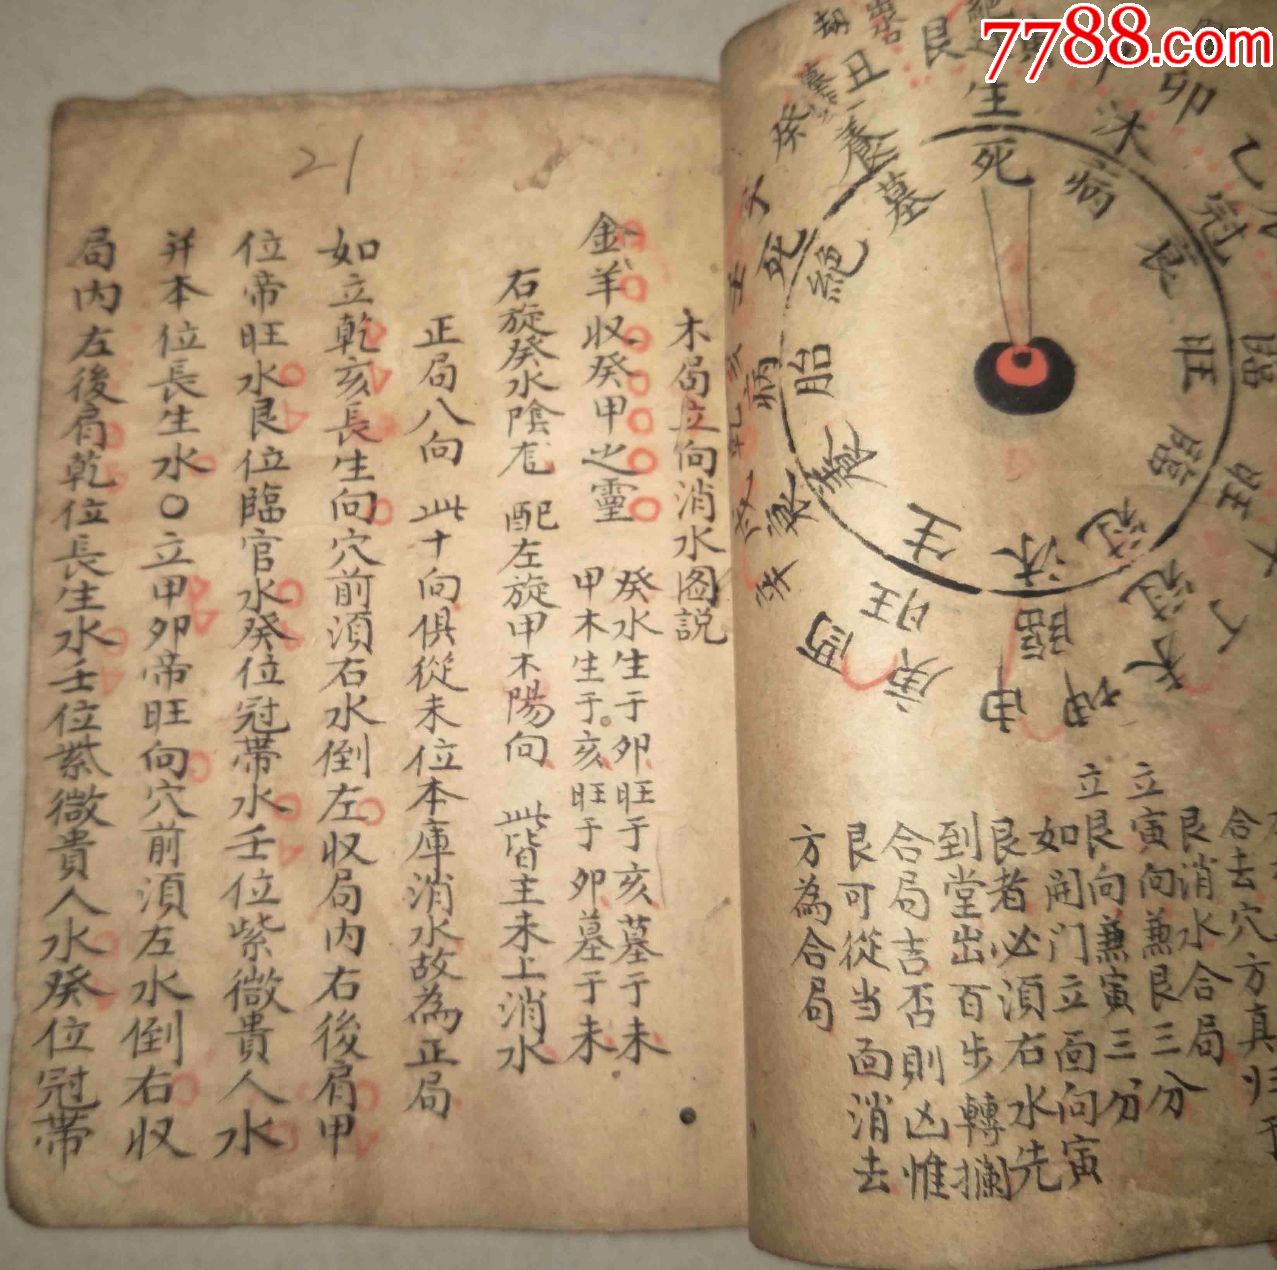 7788.com
合去穴方真
艮消水合局
立寅向兼艮三分
立艮向兼寅三分
如開门立面向寅
艮者必須右水先
到堂出百步轉攔
合局吉否則凶惟
艮可從当面消去
方為合局
丑
艮
卯
乙
生
沐
冠
臨
旺
養
墓
死
病
衰
旺
臨
冠
沐
生
養
胎
絕
墓
死
病
衰
旺
臨
冠
庚
申
坤
21
木局立向消水图説
金羊収癸甲之靈
癸水生于卯旺于亥墓于未
甲木生于亥旺于卯墓于未
右旋癸水陰龙 配左旋甲木陽向 此皆主未上消水
正局八向 此十向俱從未位本庫消水故為正局
如立乾亥長生向穴前須右水倒左収局内右後肩甲
位帝旺水艮位臨官水癸位冠帶水壬位紫微貴人水
并本位長生水〇立甲卯帝旺向穴前須左水倒右収
局内左後肩乾位長生水壬位紫微貴人水癸位冠帶